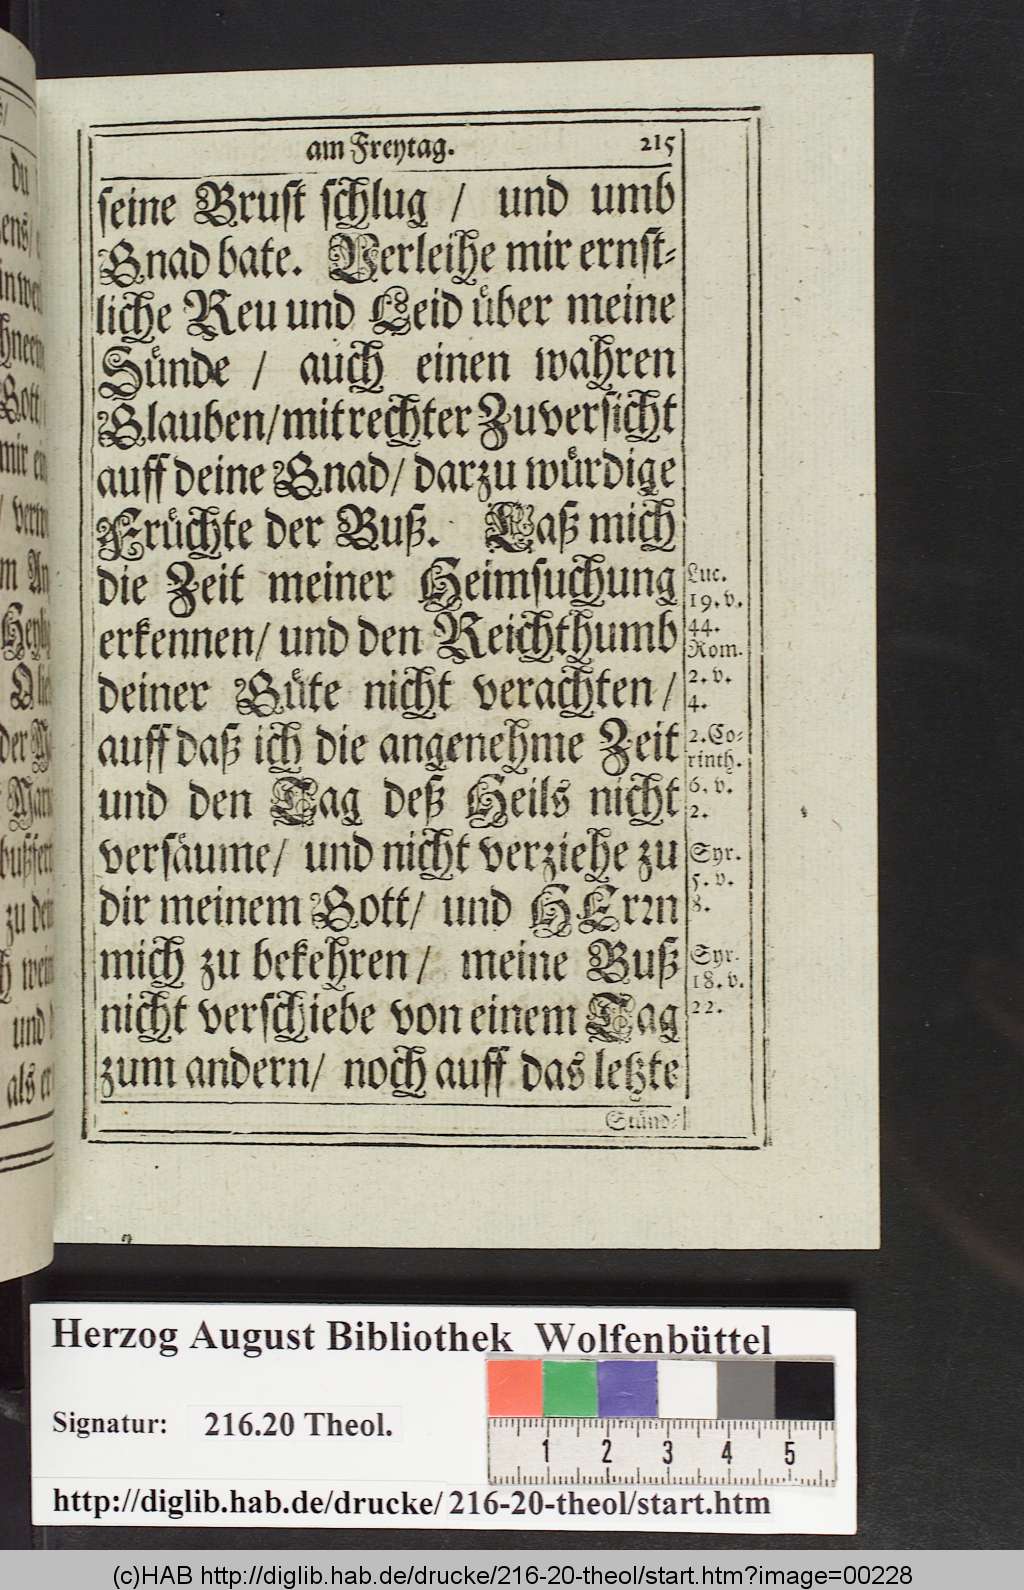 am Freytag. 215
seine Brust schlug / und umb
Gnad bate. Verleihe mir ernst-
liche Reu und Leid über meine
Sünde / auch einen wahren
Glauben/ mit rechter Zuversicht
auff deine Gnad/ darzu würdige
Früchte der Buß. Laß mich
die Zeit meiner Heimsuchung
erkennen/ und den Reichthumb
deiner Güte nicht verachten /
auff daß ich die angenehme Zeit
und den Tag deß Heils nicht
versäume/ und nicht verziehe zu
dir meinem Gott/ und HErrn
mich zu bekehren/ meine Buß
nicht verschiebe von einem Tag
zum andern/ noch auff das letzte
Stünd-
Luc.
19. v.
44.
Rom.
2. v.
4.
2. Co-
rinth.
6. v.
2.
Syr.
5. v.
8.
Syr.
18. v.
22.
du
Gott
mir
zu
und
Herzog August Bibliothek Wolfenbüttel
Signatur: 216.20 Theol.
1 2 3 4 5
http://diglib.hab.de/drucke/ 216-20-theol/start.htm
(c)HAB http://diglib.hab.de/drucke/216-20-theol/start.htm?image=00228